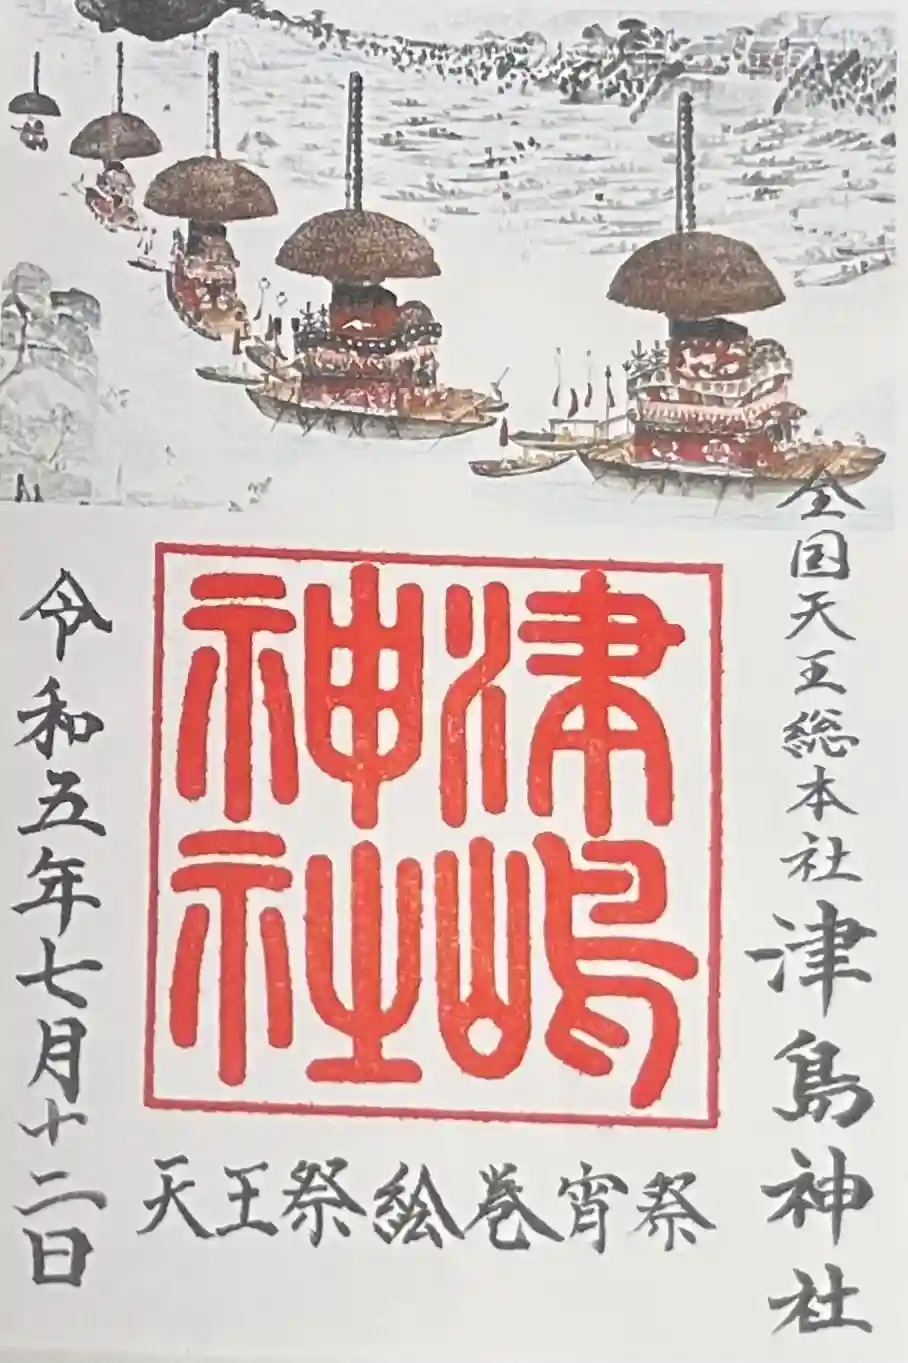 全国天王総本社 津島神社
津嶋
神社
天王祭絵巻宵祭
令和五年七月十二日